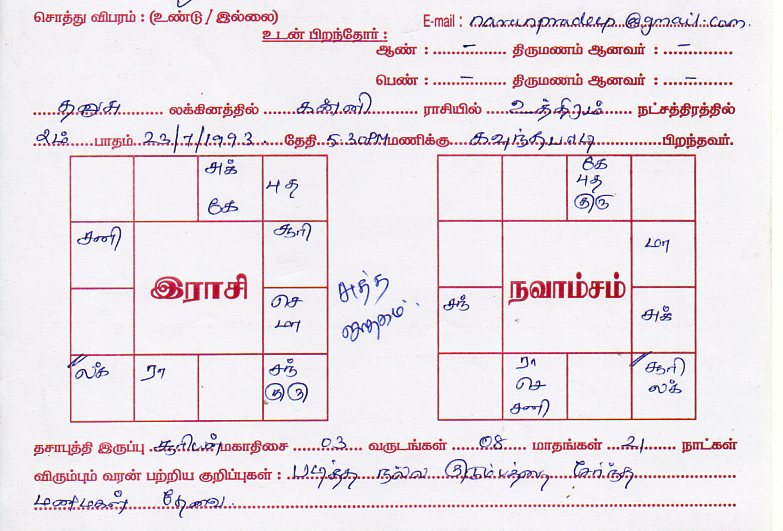 சொத்து விபரம் : (உண்டு / இல்லை) E-mail : narunpradeep@gmail.com.
உடன் பிறந்தோர் :
ஆண் : – திருமணம் ஆனவர் : –
பெண் : – திருமணம் ஆனவர் : –
தனுசு லக்கினத்தில் கன்னி ராசியில் உத்திரம் நட்சத்திரத்தில்
2ம் பாதம் 23/7/1993 தேதி 5.30PM மணிக்கு கவுந்தபாடி பிறந்தவர்.
சுக்
கே
புத
சனி
சூரி
இராசி
செ
மா
லக்
ரா
சந்
குரு
கே
புத
குரு
மா
நவாம்சம்
சந்
சுக்
ரா
செ
சனி
சூரி
லக்
சுத்த
ஜாதகம்.
தசாபுத்தி இருப்பு சூரியன் மகாதிசை 03 வருடங்கள் 08 மாதங்கள் 21 நாட்கள்
விரும்பும் வரன் பற்றிய குறிப்புகள் : படித்த நல்ல குடும்பத்தை சேர்ந்த
மணமகள் தேவை.